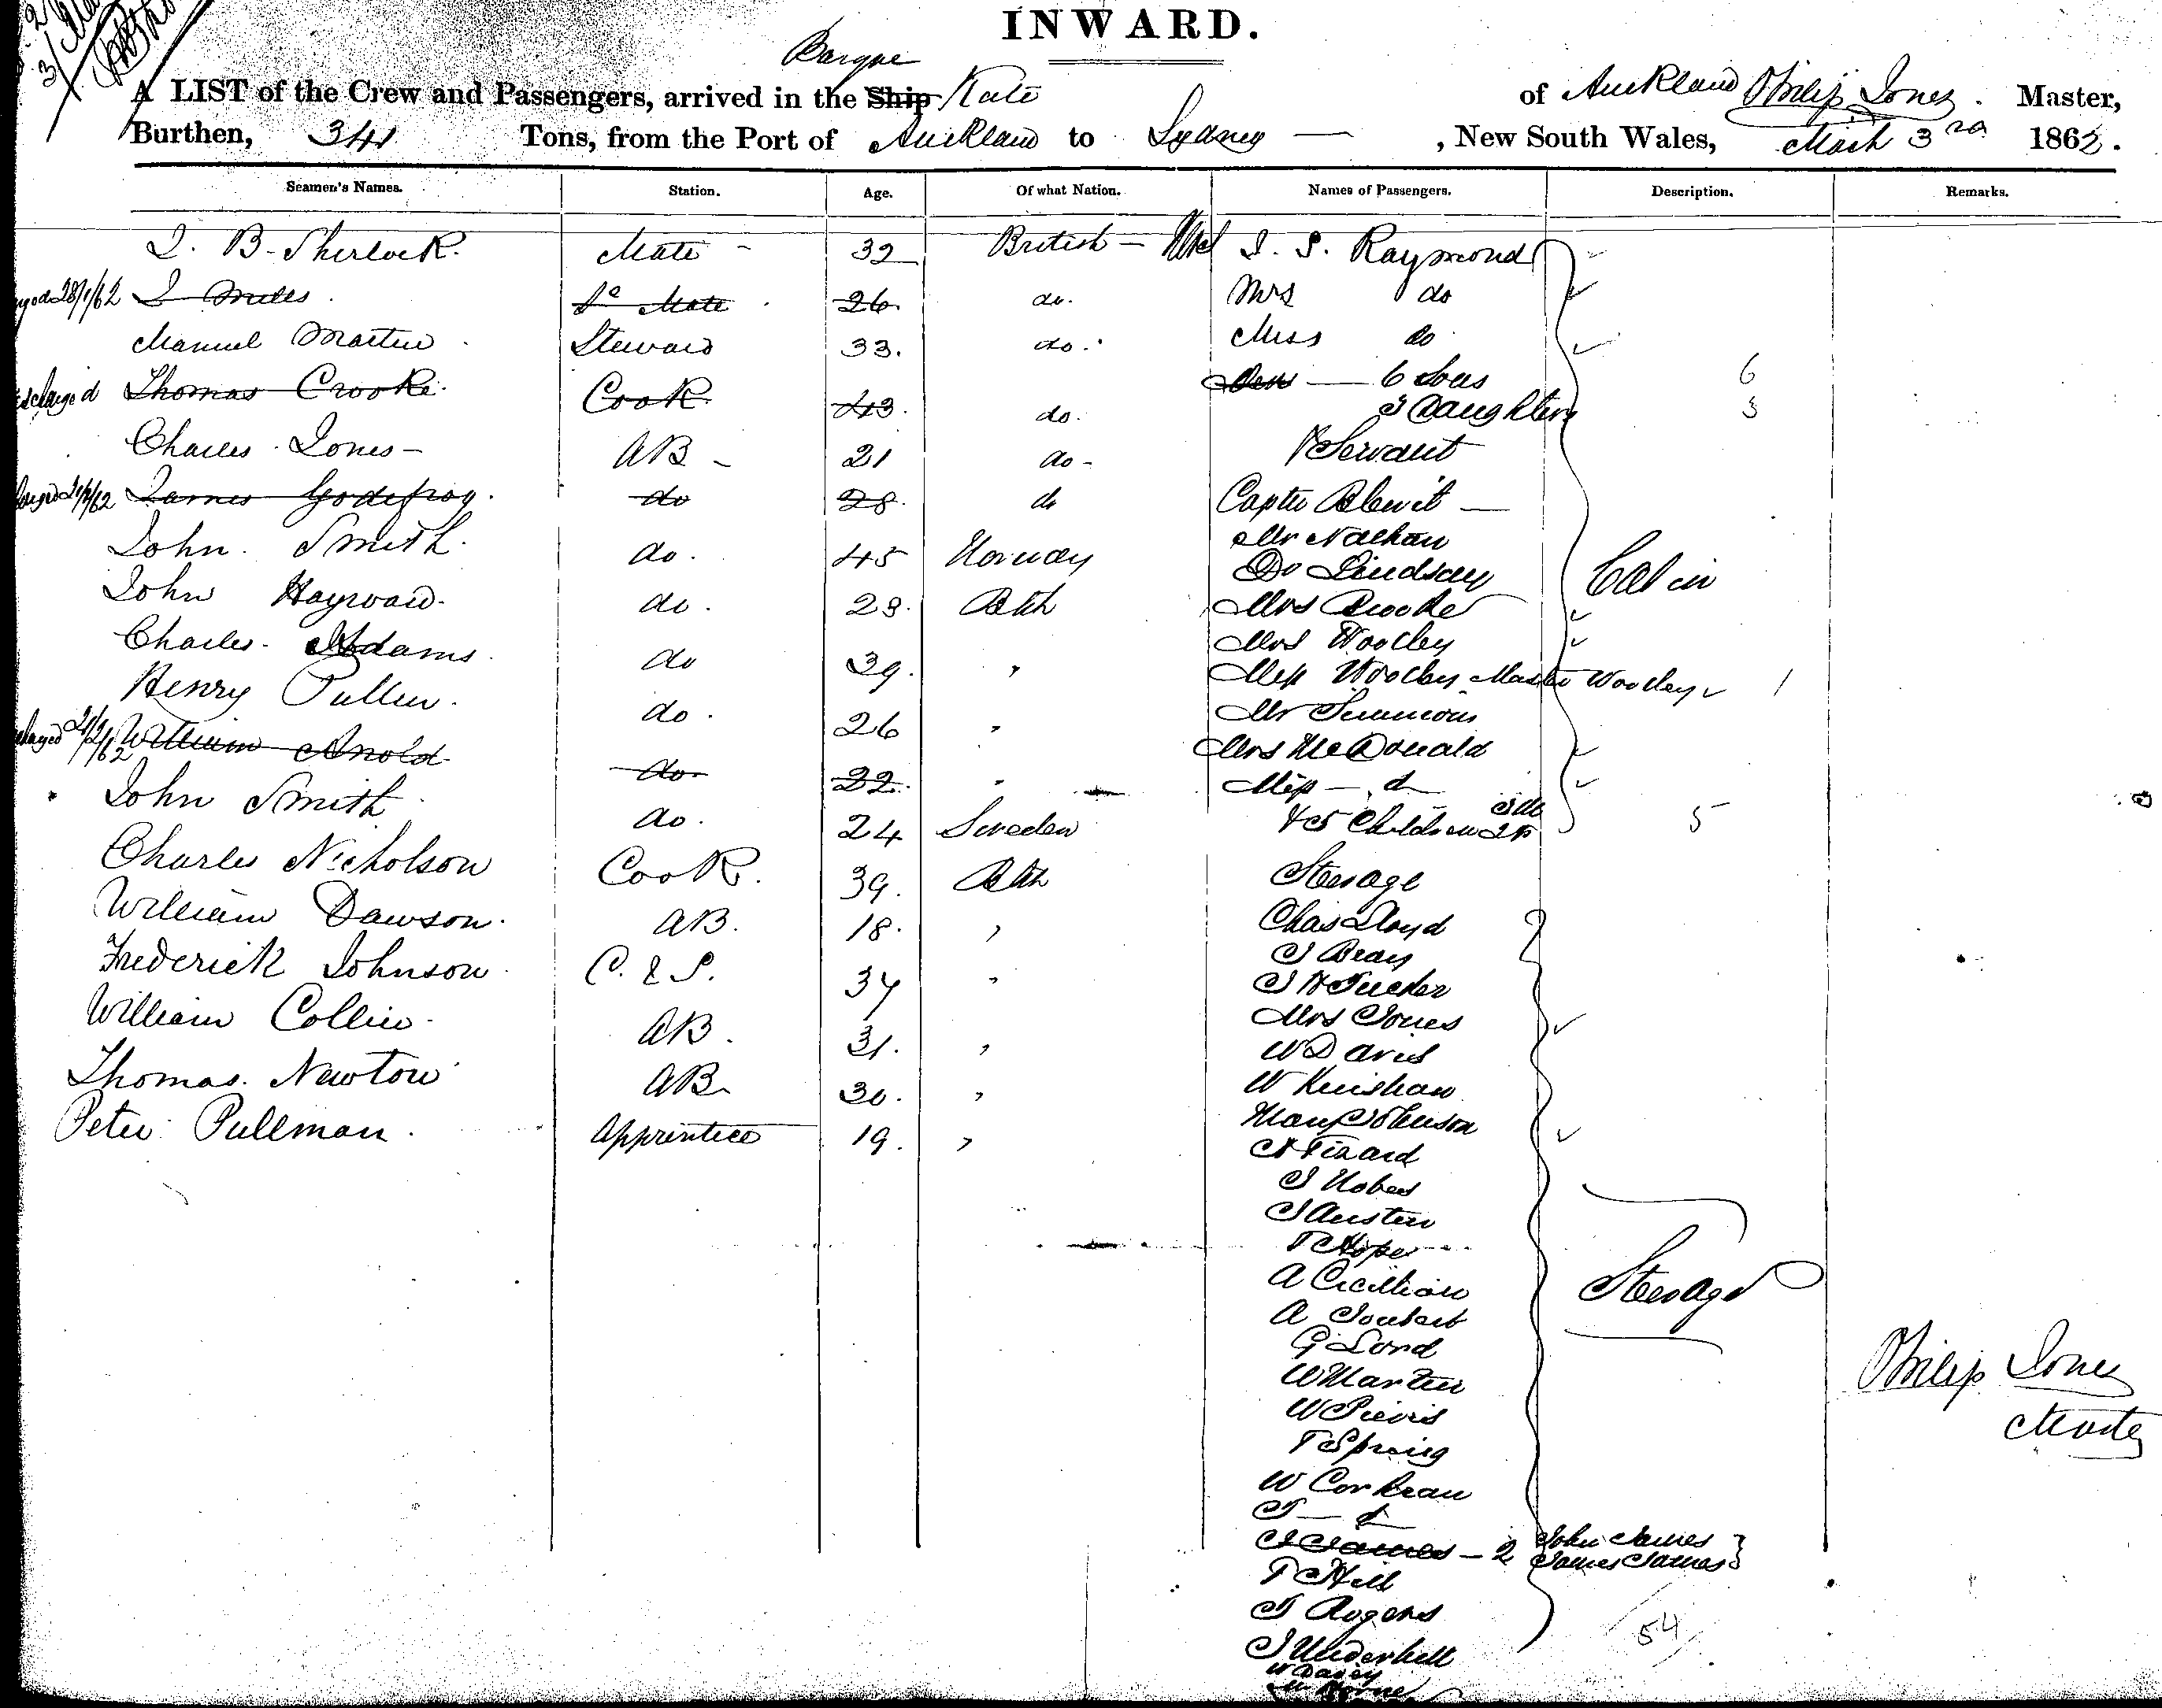 INWARD.
Barque
A LIST of the Crew and Passengers, arrived in the Ship Kate of Auckland Philip Jones. Master,
Burthen, 341 Tons, from the Port of Auckland to Sydney — , New South Wales, March 3rd 1862.
Seamen's Names. Station. Age. Of what Nation. Names of Passengers. Description. Remarks.
J. B. Sherlock. Mate 32 British J. S. Raymond
28/1/62 J Miles 2d Mate 26 do. Mrs do
Manuel Martin Steward 33. do. Miss do
Discharged Thomas Crooke Cook 43. do. 6 Sons 6
3 Daughters 3
Charles Jones AB 21 do Servant
James Godefroy. do 28. do Captn Blewit
John Smith. do. 45 Norway Mr Nathan
Dr Lindsay Cabin
John Hayward. do. 28. Btsh Mrs Crooke
Charles Adams do 39. " Mrs Woolley
Miss Woolley Master Woolley 1
Henry Pullen. do. 26 " Mr Simmons
21/2/62 William Arnold do 22. " Mrs McDonald
Miss — do
John Smith do. 24 Sweden & 5 Children 3M 2F 5
Charles Nicholson Cook. 39. Btsh Steerage
William Dawson. AB. 18. " Chas Lloyd
J Bray
Frederick Johnson C. & S. 34 " J H Tucker
Mrs Jones
William Collin AB. 31. " W Davis
Thomas Newton AB 30. " W Kinshaw
Mary Johnson
Peter Pullman. Apprentice 19. " A Tizard
J Austin
T Hope
A
A Joubert Steerage
G Lord
W Martin
W
T Spring
W Corkran
T — do
J James — 2 John James
James James
T Hill
T Rogers
J Underhill 54
W Davey
Philip Jones
Master